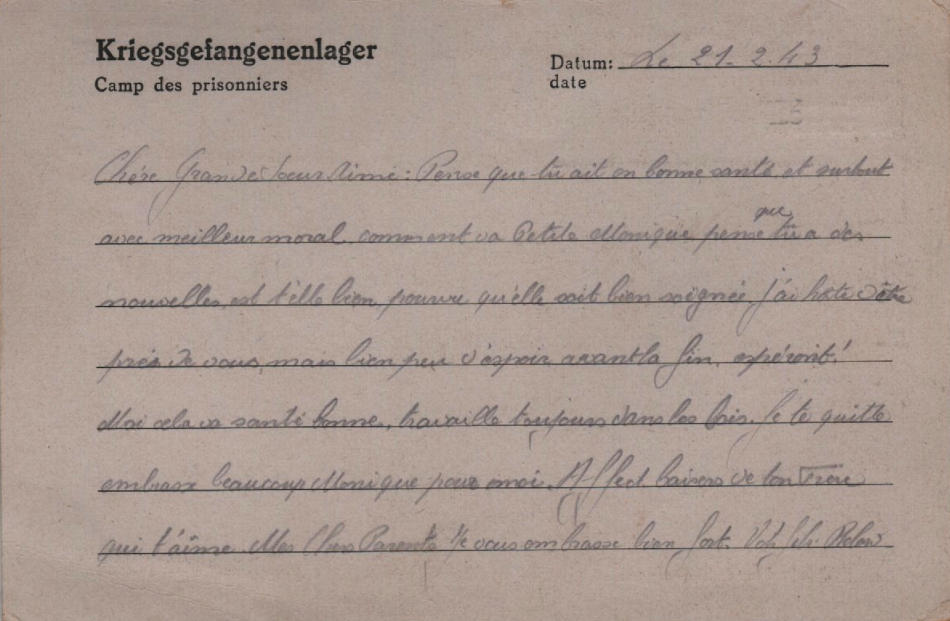 Kriegsgefangenenlager
Camp des prisonniers
Datum: Le 21. 2. 43
date
Chère Grande soeur Aimé : Pense que tu ait en bonne santé et surtout
avec meilleur moral, comment va Petite Monique pense que tu a des
nouvelles, est t'elle bien, pourvu qu'elle soit bien soignée, j'ai hâte d'être
près de vous, mais bien peu d'espoir avant la fin, espéront!
Moi cela va santé bonne, travaille toujours dans les bois. Je te quitte
embrasse beaucoup Monique pour moi. Affect baisers de ton Frère
qui t'aime. Mes Chers Parents Je vous embrasse bien fort.